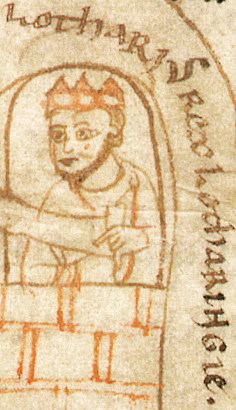 LOTHARIVS REX LOTHARINGIE.